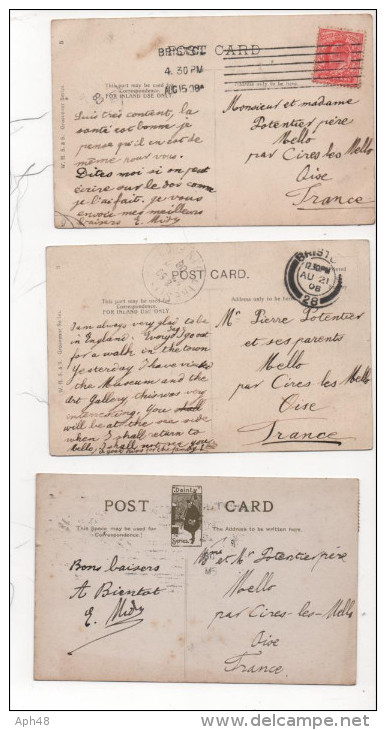 POST CARD
BRISTOL
4.30 PM
AU 15 08
This part may be used for
Correspondence.
FOR INLAND USE ONLY
Address only to be
W. H. S. & S.
Suis très content, la
santé est bonne je
pense qu'il en est de
même pour vous.
Dites moi si on peut
écrire sur le dos comme
je l'ai fait. Je vous
envoie mes meilleurs
baisers E. Midy
Monsieur et madame
Potentier père
Mello
par Cires les Mello
Oise
France
POST CARD.
BRISTOL
12.30PM
AU 21
08
28
This part may be used for
Correspondence.
FOR INLAND USE ONLY
Address only to be
W. H. S. & S.
I am always very glad to be
in England. I go out
for a walk in the town
Yesterday I have visited
the Museum and the
Art Gallery, this was very
interesting. You shall
will be at the sea side
when I shall return to
Mello, I shall not see you
Mr Pierre Potentier
et ses parents
Mello
par Cires les Mello
Oise
France
POST CARD
Dainty
Series
This Space may be used for
Correspondence.
The Address to be written here.
Bons baisers
A Bientot
E. Midy
Mme et Mr Potentier père
Mello
par Cires-les-Mello
Oise
France
Aph48
www.delcampe.net